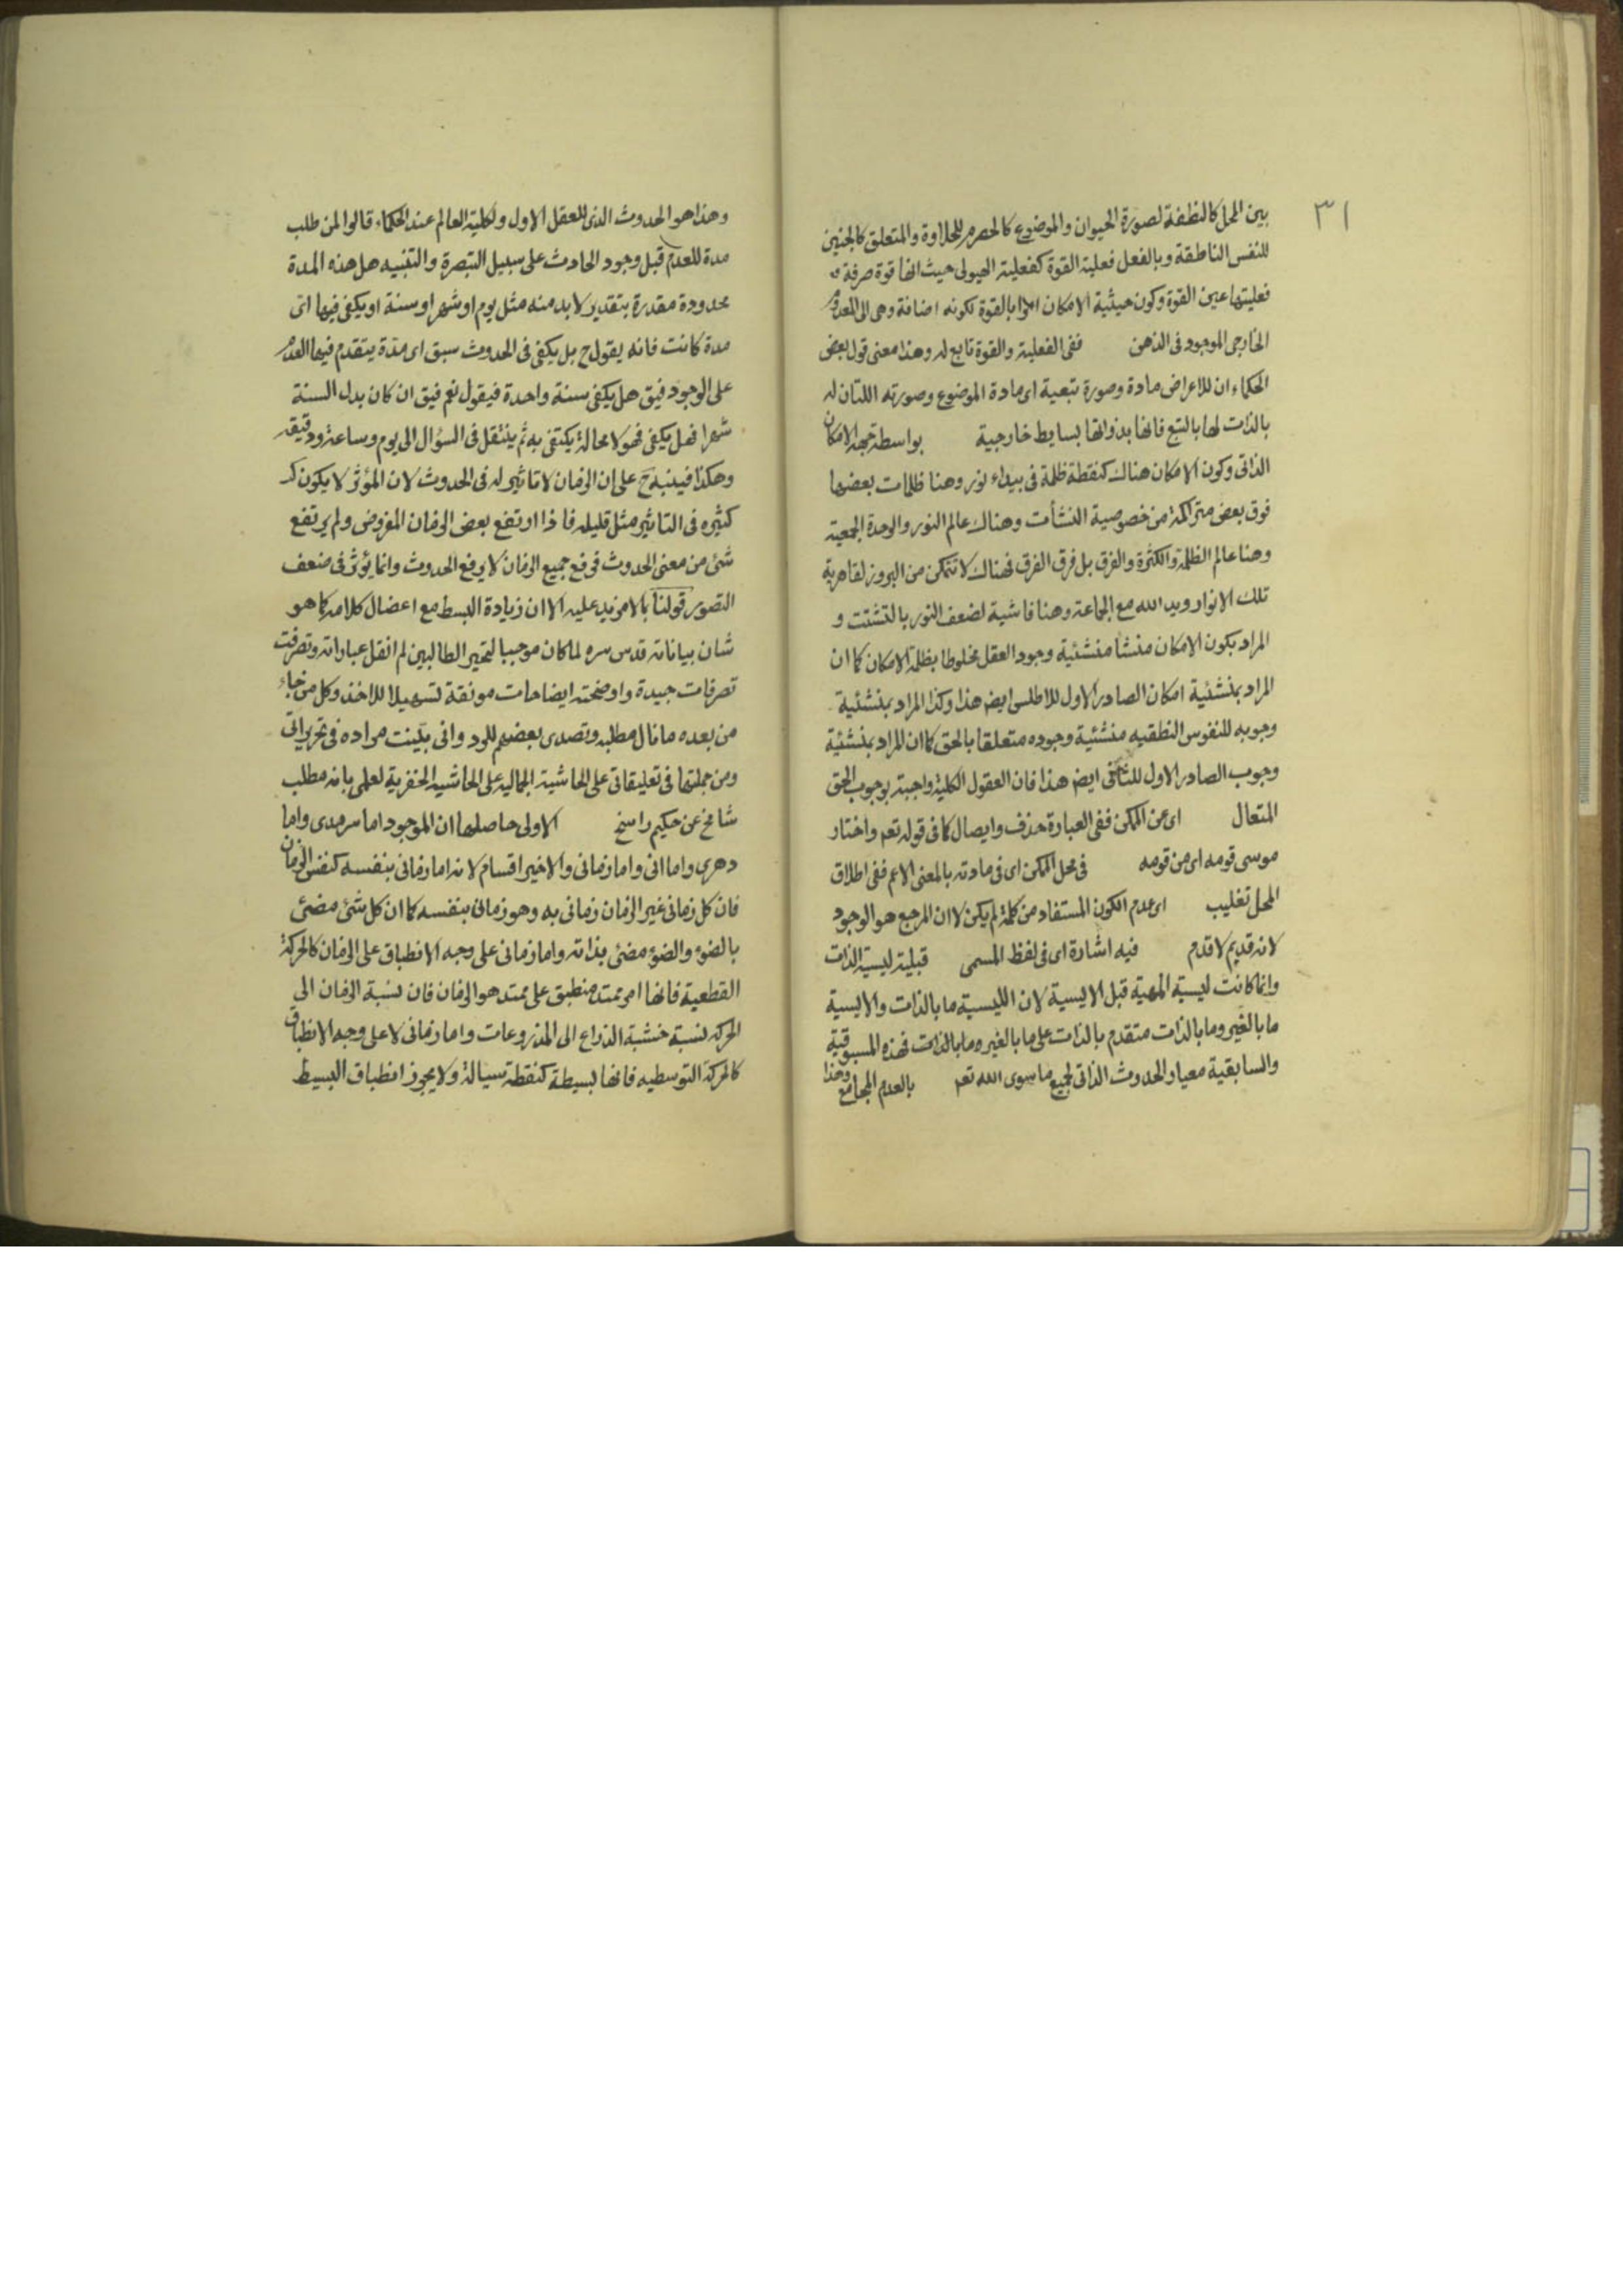 ٣١
بين المحل كالنطفة لصورة الحيوان والموضوع كالحصرم للحلاوة والمتعلق كالجنين
للنفس الناطقة وبالفعل فعلية القوة كفعلية الهيولى حيث انها قوة صرفة و
فعليتها عين القوة وكون حيثية الامكان امرا بالقوة لكونه اضافة وهى الى المعدوم
الخارجى الموجود فى الذهن ففى الفعلية والقوة تابع له وهذا معنى قول بعض
الحكماء ان للاعراض مادة وصورة بتبعية اى مادة الموضوع وصورته اللتان له
بالذات لها بالتبع فانها بذواتها بسايط خارجية بواسطة جهة الامكان
الذاتى وكون الامكان هناك كنقطة ظلمة فى بيداء نور وهنا ظلمات بعضها
فوق بعض متراكمة من خصوصية النشأت وهناك عالم النور والوحدة الجمعية
وهنا عالم الظلمة والكثرة والفرق بل فرق الفرق فهناك لا تتمكن من البروز لقاهرية
تلك الانوار ويد الله مع الجماعة وهنا فاشية لضعف النور بالتشتت و
المراد بكون الامكان منشأ منشئية وجود العقل مخلوطا بظلمة الامكان كما ان
المراد بمنشئية امكان الصادر الاول للاطلس ايض هذا وكذا المراد بمنشئية
وجوبه للنفوس النطقيه منشئية وجوده متعلقا بالحق كما ان المراد بمنشئية
وجوب الصادر الاول للثانى ايض هذا فان العقول الكلية واجبة بوجوب الحق
المتعال اى عن الممكن ففى العبارة حذف وايصال كما فى قوله تعم واختار
موسى قومه اى من قومه فى محل الممكن اى فى مادته بالمعنى الاعم ففى اطلاق
المحل تغليب اى عدم الكون المستفاد من كلمة لم يكن لا ان المرجع هو الوجود
لانه قديم لا قدم فيه اشارة اى فى لفظ المسمى قبلية ليسية الذات
وانما كانت ليسية المهية قبل الايسية لان الليسية ما بالذات والايسية
ما بالغير وما بالذات متقدم بالذات على ما بالغير وما بالذات فهذه المسبوقية
والسابقية معيار الحدوث الذاتى لجميع ما سوى الله تعم بالعدم المجامع وهذا
وهذا هو الحدوث الذى للعقل الاول ولكلية العالم عند الحكماء قالوا لمن طلب
مدة للعدم قبل وجود الحادث على سبيل التبصرة والتنبيه هل هذه المدة
محدودة مقدرة بتقدير لا بد منه مثل يوم او شهر او سنة او يكفى فيها اى
مدة كانت فانه يقول ح بل يكفى فى الحدوث سبق اى مدة يتقدم فيها العدم
على الوجود فيق هل يكفى سنة واحدة فيقول نعم فيق ان كان بدل السنة
شهرا فهل يكفى فهو لا محالة يكتفى به ثم ينتقل فى السؤال الى يوم وساعة ودقيقه
وهكذا فينبه ح على ان الزمان لا تاثير له فى الحدوث لان المؤثر لا يكون كـ
كثيره فى التاثير مثل قليله فاذا ارتفع بعض الزمان المفروض ولم يرتفع
شئ من معنى الحدوث فرفع جميع الزمان لا يرفع الحدوث وانما يؤثر فى ضعف
التصور قولنا بالا مزيد عليه الا ان زيادة البسط مع اعضال كلامه كما هو
شان بياناته قدس سره لما كان موجبا لتحير الطالبين لم انقل عباراته وتصرفت
تصرفات جيدة واوضحته ايضاحات مونقة تسهيلا للاخذ وكل من جاء
من بعده ما نال مطلبه وتصدى بعضهم للرد وانى بينت مراده فى تحريراتى
ومن جملتها فى تعليقاتى على الحاشية الجماليه على الحاشيه الخفرية لعلمى بانه مطلب
شامخ عن حكيم راسخ الاولى حاصلها ان الموجود اما سرمدى واما
دهرى واما انى واما زمانى والاخير اقسام لانه اما زمانى بنفسه كنفس الزمان
فان كل زمانى غير الزمان زمانى به وهو زمانى بنفسه كما ان كل شئ مضئ
بالضوء والضوء مضئ بذاته واما زمانى على وجه الانطباق على الزمان كالحركة
القطعية فانها امر ممتد منطبق على ممتد هو الزمان فان نسبة الزمان الى
الحركه نسبة خشبة الذراع الى المذروعات واما زمانى لا على وجه الانطباق
كالحركة التوسطيه فانها بسيطة كنقطة سيالة ولا يجوز انطباق البسيط